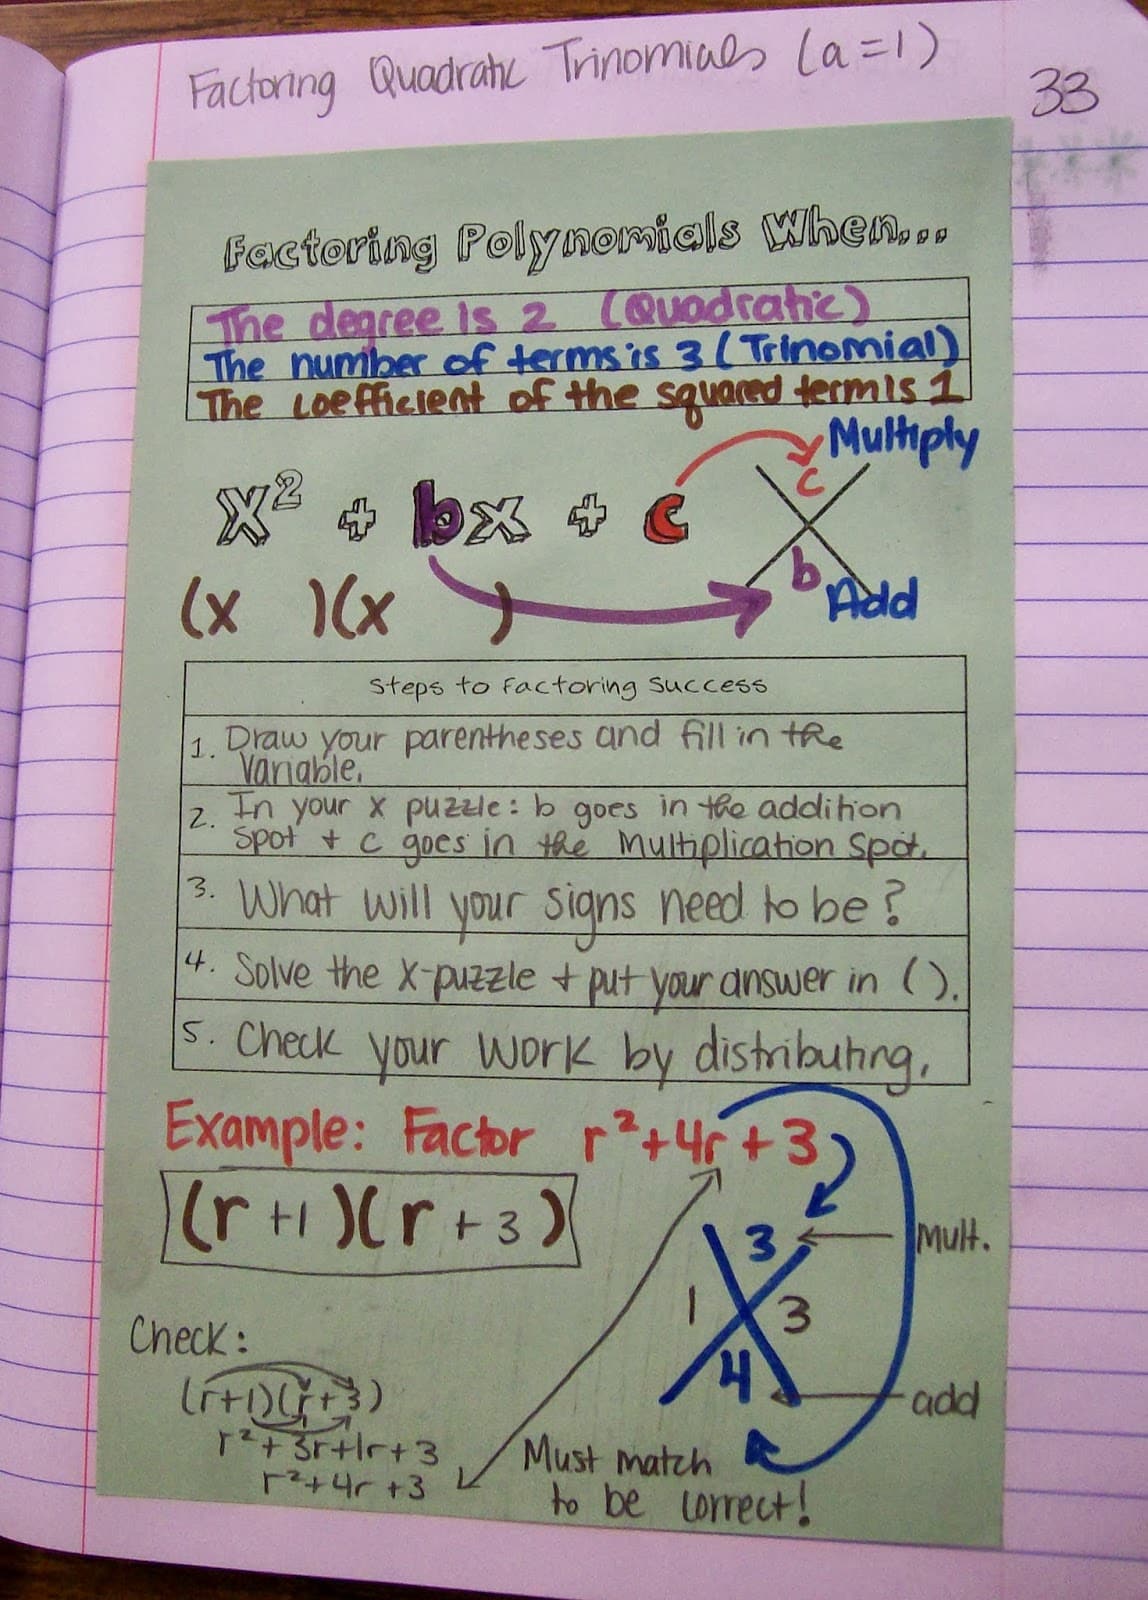 Factoring Quadratic Trinomials (a=1)
33
Factoring Polynomials When...
The degree is 2 (Quadratic)
The number of terms is 3 (Trinomial)
The coefficient of the squared term is 1
Multiply
x² + bx + c
c
b
Add
(x )(x )
Steps to Factoring Success
1. Draw your parentheses and fill in the
variable.
2. In your x puzzle: b goes in the addition
spot + c goes in the Multiplication Spot.
3. What will your signs need to be?
4. Solve the x-puzzle + put your answer in ( ).
5. Check your work by distributing.
Example: Factor r²+4r+3
(r +1)(r +3)
3
Mult.
1 3
4
add
Check:
(r+1)(r+3)
r²+3r+1r+3
r²+4r+3
Must match
to be correct!